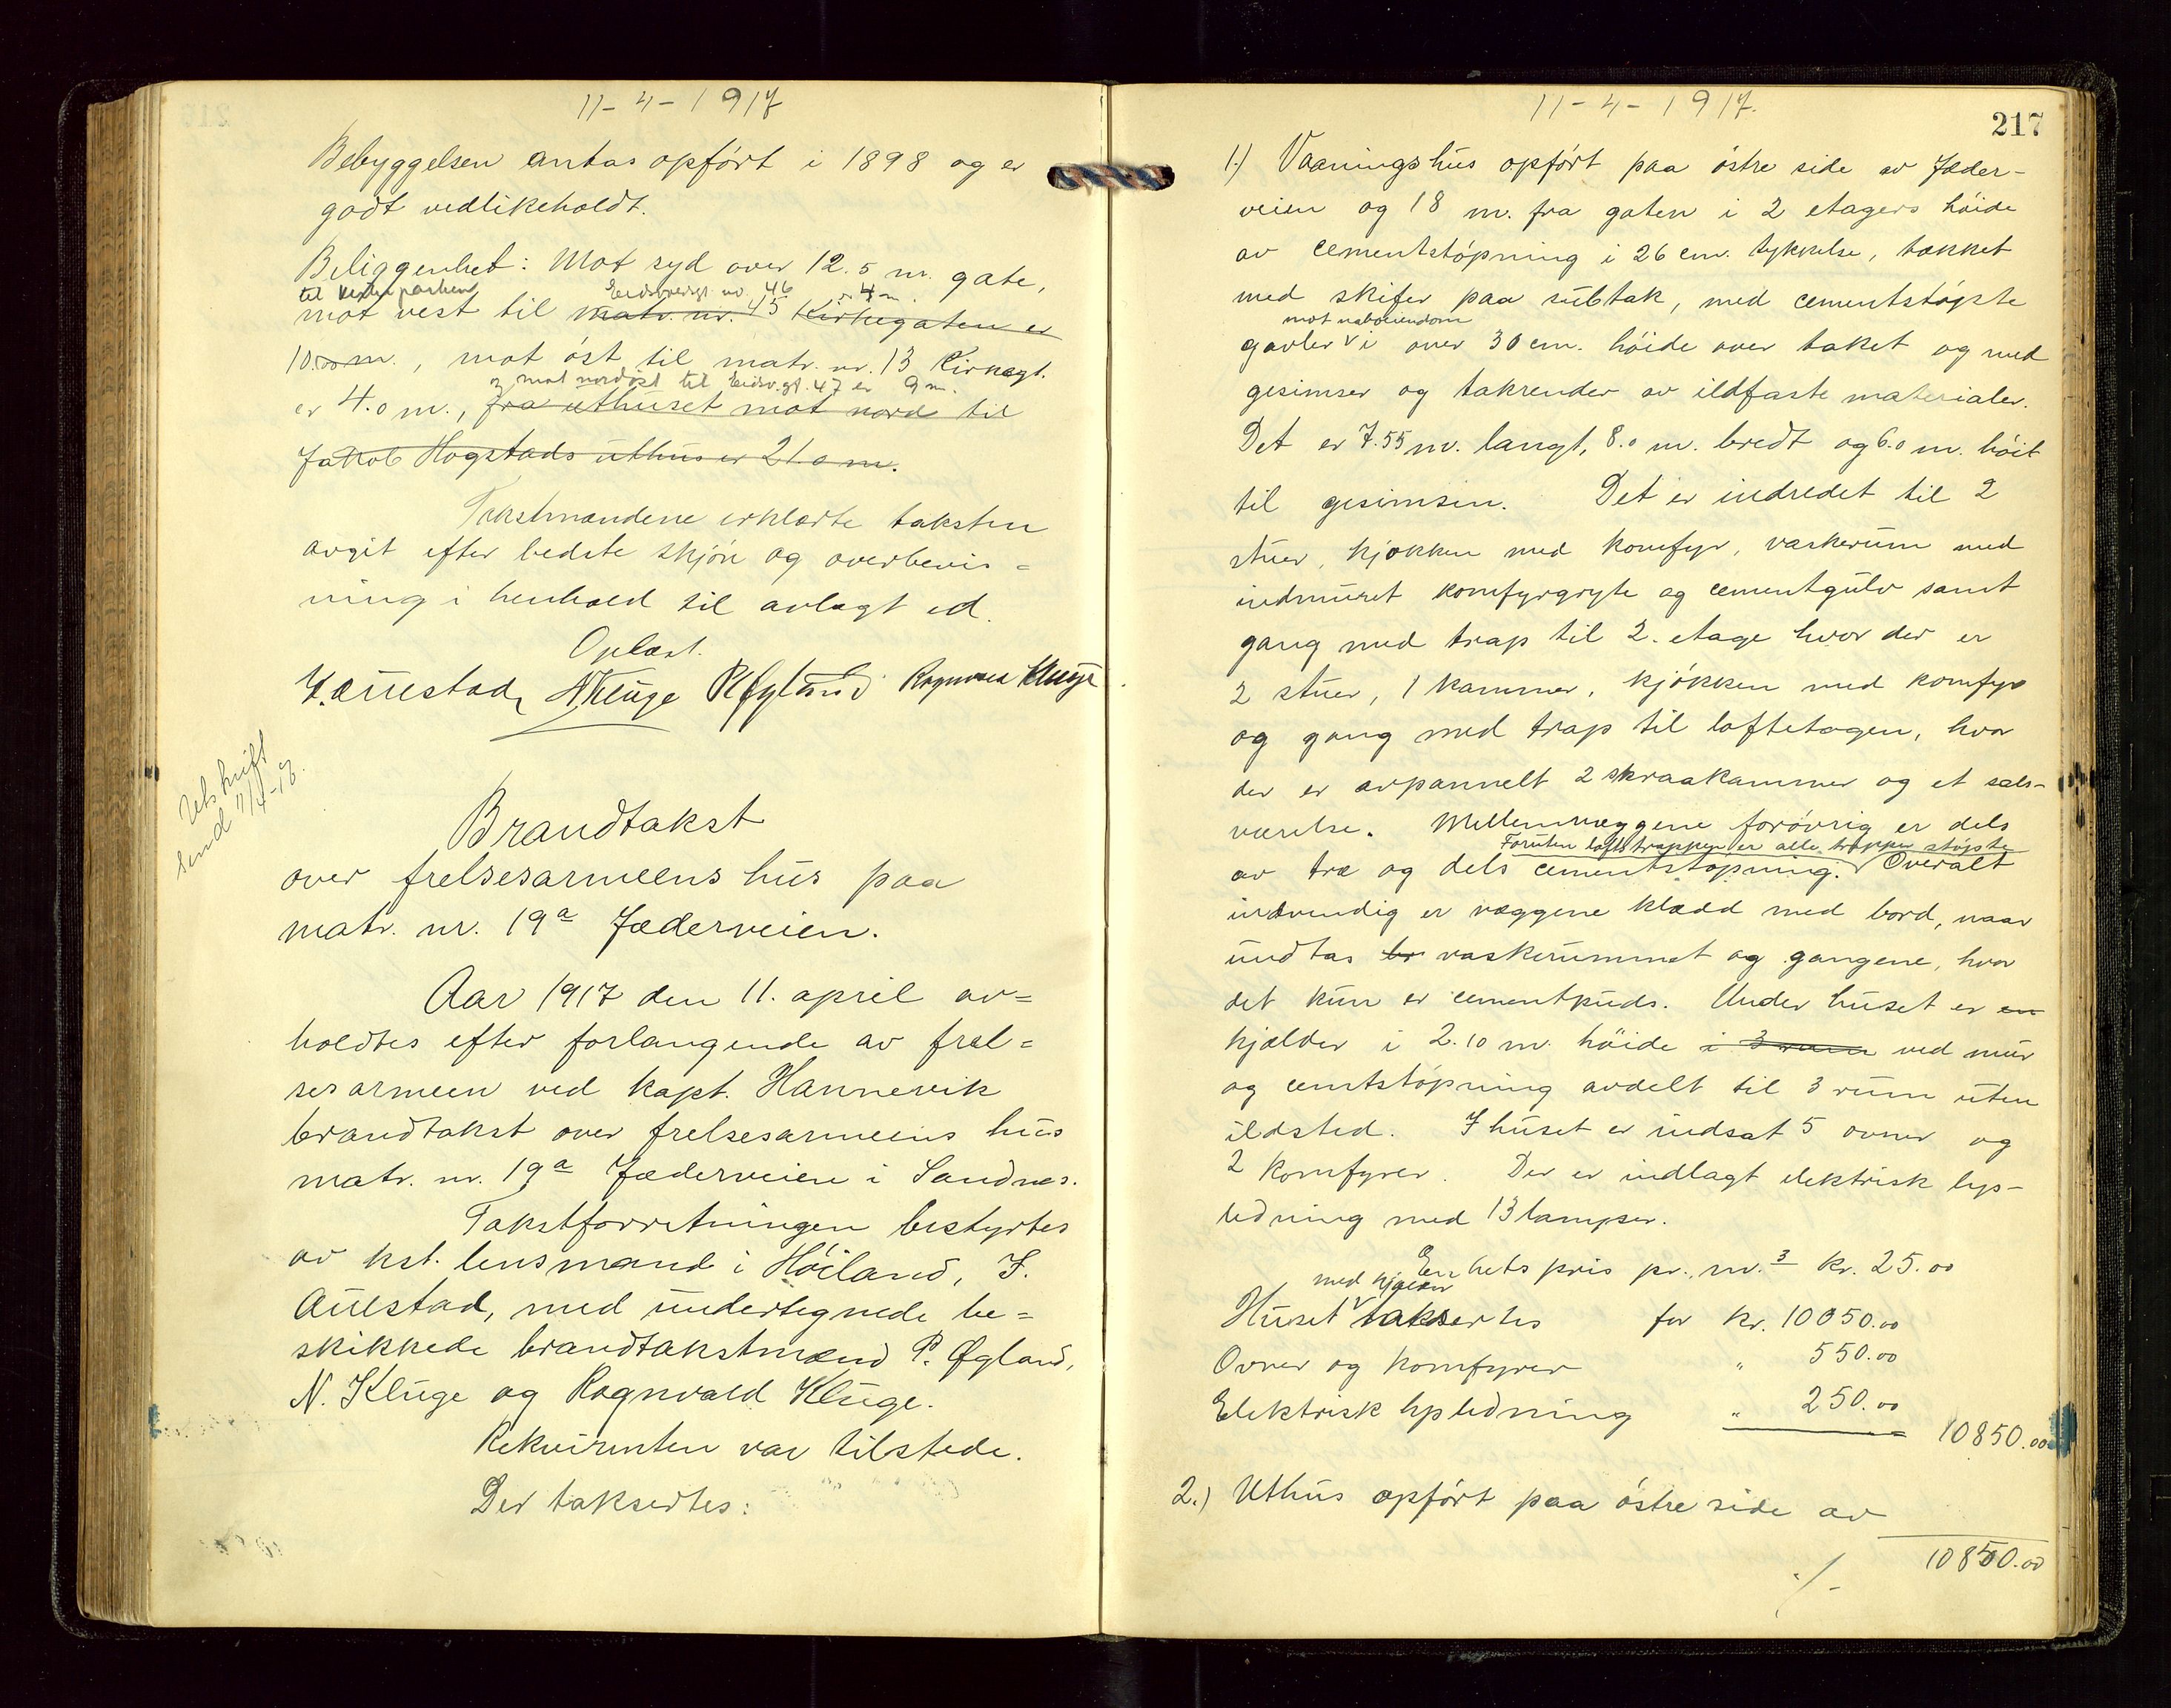 11-4-1917
Bebyggelsen antas opført i 1898 og er
godt vedlikeholdt.
Beliggenhet: Mot syd over 12.5 m. gate,
mot vest til matr. nr. 45 Kirkegaten er
10.00 m., mot øst til matr. nr. 13 Kirkegt.
og mot nordøst til Eidsv.gt. 47 er 9 m.
er 4.0 m., fra uthuset mot nord til
Jakob Hogstads uthus er 21.0 m.
Takstmændene erklærte taksten
avgit efter bedste skjøn og overbevis=
ning i henhold til avlagt ed.
Oplæst.
J. Auestad, N Kluge P. Øgland Ragnvald Kluge
Utskrift
send 11/4-17.
Brandtakst
over frelsesarmeens hus paa
matr. nr. 19a Jæderveien.
Aar 1917 den 11. april av=
holdtes efter forlangende av frel=
sesarmeen ved kapt. Hannevik
brandtakst over frelsesarmeens hus
matr. nr. 19a Jæderveien i Sandnes.
Takstforretningen bestyrtes
av kst. lensmand i Høiland, J.
Auestad, med undertegnede be=
skikkede brandtakstmænd P. Øgland,
N. Kluge og Ragnvald Kluge.
Rekvirenten var tilstede.
Der taksertes:
11-4-1917.
217
1.) Vaaningshus opført paa østre side av Jæder-
veien og 18 m. fra gaten i 2 etagers høide
av cementstøpning i 26 cm. tykkelse, tækket
med skifer paa subtak, med cementstøpte
mot naboeiendom
gavler i over 30 cm. høide over taket og med
gesimser og takrender av ildfaste materialer.
Det er 7.55 m. langt, 8.0 m. bredt og 6.0 m. høit
til gesimsen. Det er indredet til 2
stuer, kjøkken med komfyr, vaskerum med
indmuret komfyrgryte og cementgulv samt
gang med trap til 2. etage hvor der er
2 stuer, 1 kammer, kjøkken med komfyr
og gang med trap til loftetagen, hvor
der er avpannelt 2 skraakammer og et sals-
værelse. Mellemvæggene forøvrig er dels
Foruten loftstrappen er alle trapper støpte
av træ og dels cementstøpning. Overalt
indvendig er væggene klædd med bord, naar
undtas br vaskerummet og gangene, hvor
det kun er cementpuds. Under huset er en
kjælder i 2.10 m. høide i 3 rum ved mur
og cemtstøpning avdelt til 3 rum uten
ildsted. I huset er indsat 5 ovner og
2 komfyrer. Der er indlagt elektrisk lys-
ledning med 13 lamper.
Enhetspris pr. m.3 kr. 25.00
med kjælder
Huset taksertes for kr. 10050.00
Ovner og komfyrer " 550.00
Elektrisk lysledning " 250.00
10850.00
2.) Uthus opført paa østre side av
10850.00
./-